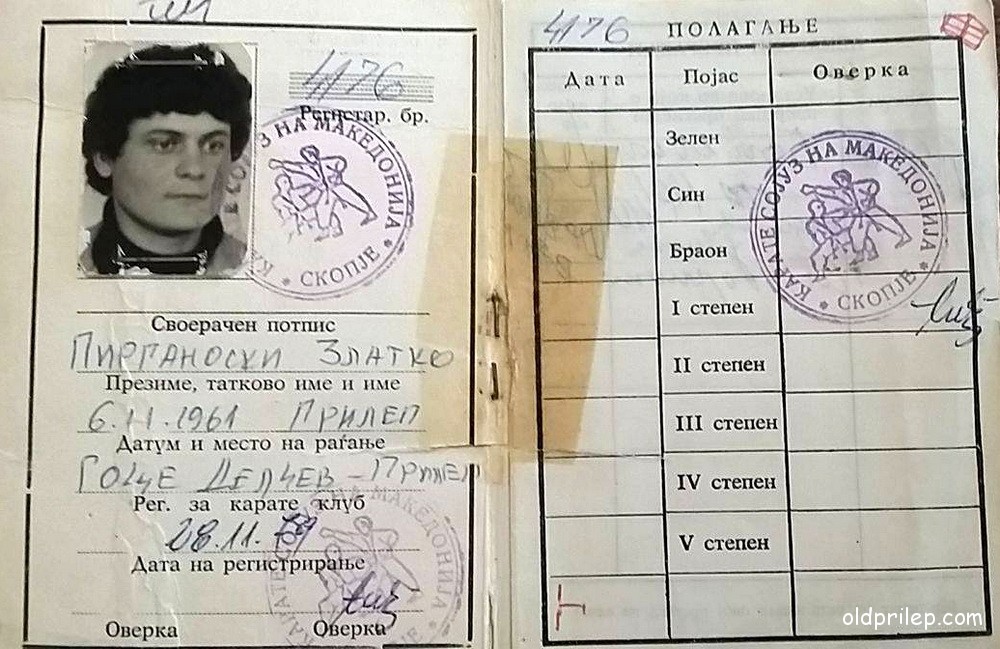 4176
Регистар. бр.
КАРАТЕ СОЈУЗ НА МАКЕДОНИЈА * СКОПЈЕ *
Своерачен потпис
ПИРГАНОСКИ ЗЛАТКО
Презиме, татково име и име
6.11.1961 ПРИЛЕП
Датум и место на раѓање
ГОЦЕ ДЕЛЧЕВ – ПРИЛЕП
Рег. за карате клуб
28.11.79
Дата на регистрирање
КАРАТЕ СОЈУЗ НА МАКЕДОНИЈА
Оверка Оверка
4176 ПОЛАГАЊЕ
Дата Појас Оверка
Зелен
Син
Браон
КАРАТЕ СОЈУЗ НА МАКЕДОНИЈА * СКОПЈЕ *
I степен
II степен
III степен
IV степен
V степен
oldprilep.com